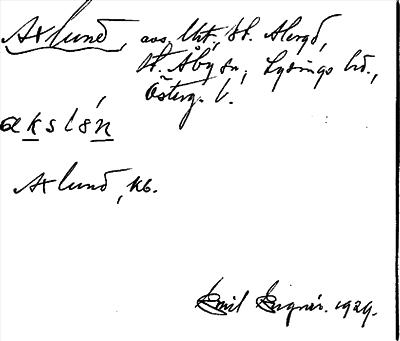 Axlund, avs. Uht, St. Åbergd,
St. Åby sn, Lysings hd.,
Österg. l.
akslön
Axlund, kb.
Emil Ingnér. 1929.